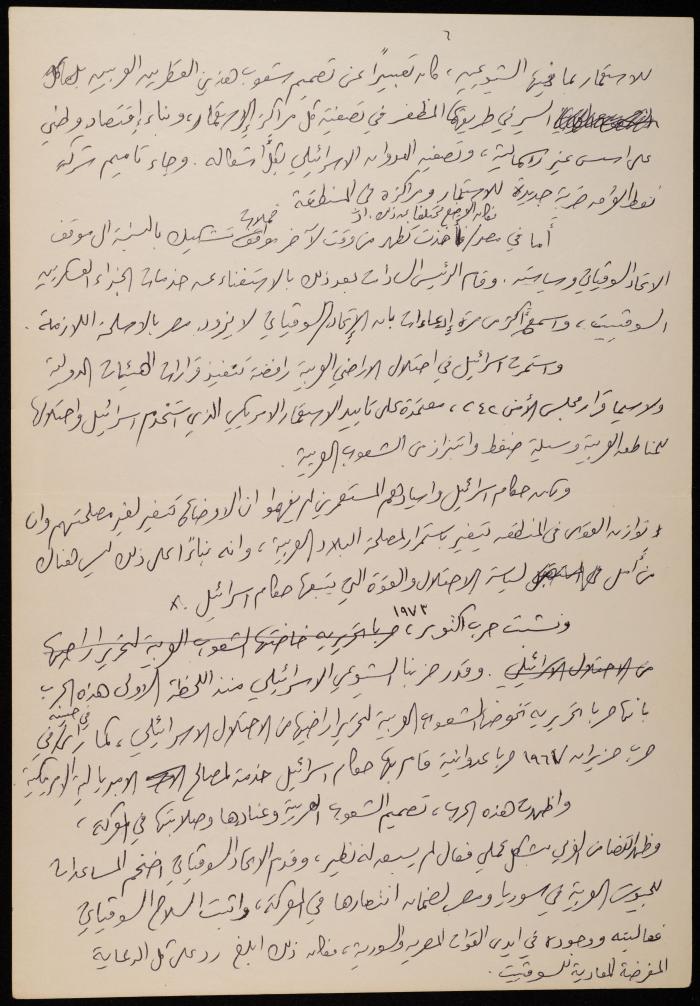 ٦
للاستعمار بما فيها الشيوعيين، كان تعبيرًا عن تصميم شعوب هذين القطرين العربيين
السير في طريقها المظفر في تصفية كل مراكز الاستعمار، وبناء إقتصاد وطني
على اسس غير رأسمالية، وتصفية العدوان الاسرائيلي بكل أشكاله. وجاء تاميم شركة
نفط العراق ضربة جديدة للاستعمار ومراكزه في المنطقة
فكان الوضع مختلفا بعد ذلك. اذ حملات
أما في مصر فأخذت تظهر من وقت لآخر مواقف تشكيك بالنسبة الى موقف
الاتحاد السوفياتي وسياسته. وقام الرئيس السادات بعد ذلك بالاستغناء عن خدمات الخبراء العسكريين
السوفييت، واسمع أكثر من مرة إدعاءات بان الإتحاد السوفياتي لا يزود مصر بالاسلحة اللازمة.
واستمرت اسرائيل في احتلال الاراضي العربية رافضة تنفيذ قرارات الهيئات الدولية
ولا سيما قرار مجلس الأمن ٢٤٢، معتمدة على تاييد الاستعمار الامريكي الذي استخدم اسرائيل واحتلالها
للمناطق العربية وسيلة ضغط وابتزاز من الشعوب العربية.
ولكن حكام اسرائيل واسيادهم المستعمرين لم يفهموا ان الاوضاع تتغير لغير مصلحتهم وان
توازن القوى في المنطقة يتغير باستمرار لمصلحة البلاد العربية، وانه بناءً على ذلك ليس هناك
من أمل لسياسة الاحتلال والقوة التي يتبعها حكام اسرائيل.
ونشبت حرب اكتوبر ١٩٧٣، حربا تحريرية خاضتها الشعوب العربية لتحرير اراضيها
من الاحتلال الاسرائيلي. وقدر حزبنا الشيوعي الاسرائيلي منذ اللحظة الاولى هذه الحرب
بانها حربا تحريرية تخوضها الشعوب العربية لتحرير اراضيها من الاحتلال الاسرائيلي، كما رأى في حينه في
حرب حزيران ١٩٦٧ حربا عدوانية قام بها حكام اسرائيل خدمة لمصالح الامبريالية الامريكية
واظهرت هذه الحرب، تصميم الشعوب العربية وعنادها وصلابتها في المعركة،
وظهر التضامن العربي بشكل عملي فعال لم يسبق له نظير، وقدم الاتحاد السوفياتي اضخم المساعدات
للجيوش العربية في سوريا ومصر لضمان انتصارها في المعركة، واثبت السلاح السوفياتي
فعاليته وجودته في ايدي القوات المصرية والسورية، فكان ذلك ابلغ رد على كل الدعاية
المغرضة المعادية للسوفييت.